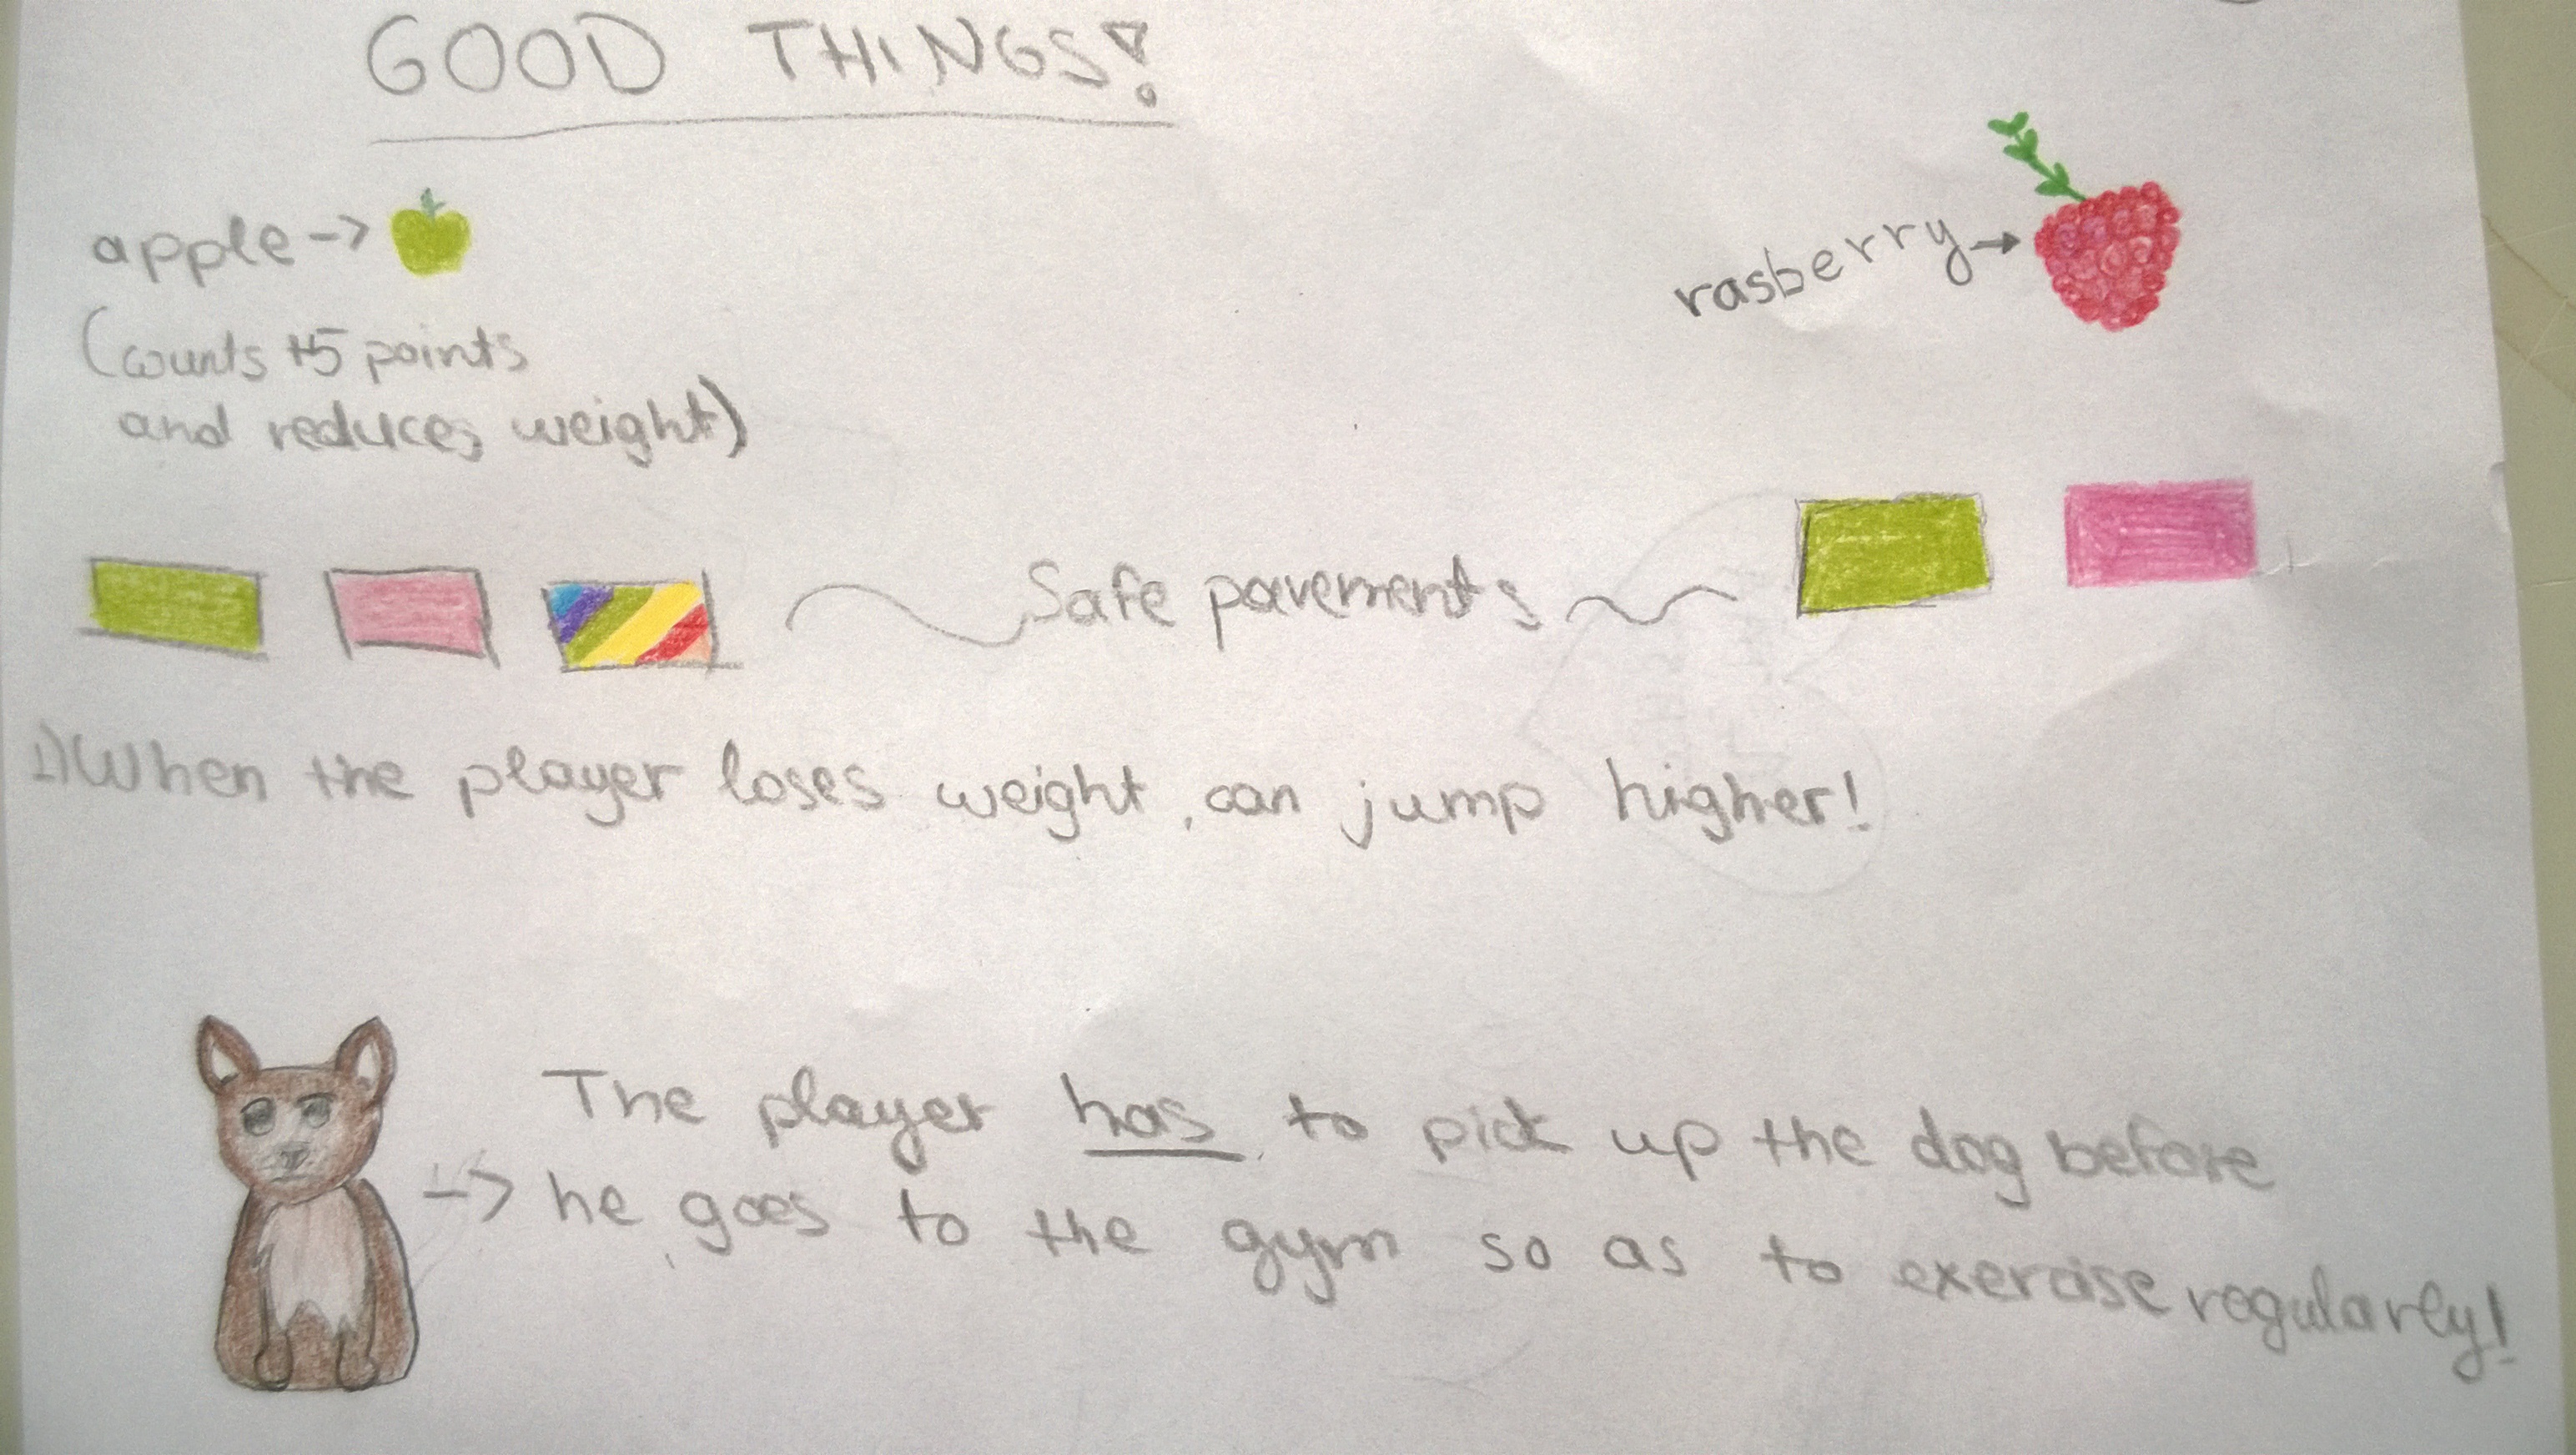 GOOD THINGS!
apple ->
rasberry →
(counts +5 points
and reduces weight)
Safe pavements
1) When the player loses weight, can jump higher!
The player has to pick up the dog before
-> he goes to the gym so as to exercise regularly!